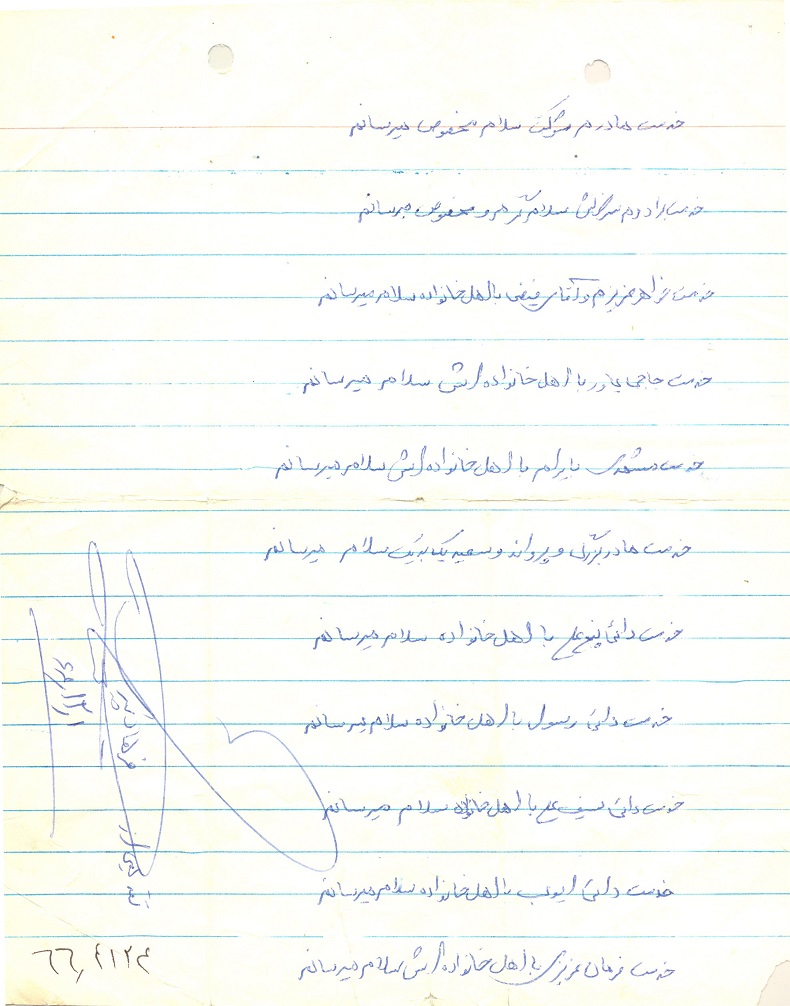 خدمت مادرم شوکت سلام مخصوص میرسانم
خدمت برادرم سلام گرم و مخصوص میرسانم
خدمت خواهر عزیزم و آقای فیضی با اهل خانواده سلام میرسانم
خدمت حاجی با اهل خانواده اش سلام میرسانم
خدمت مشهدی بایرام با اهل خانواده اش سلام میرسانم
خدمت مادربزرگ و پروانه و سمیه یک به یک سلام میرسانم
خدمت دائی پنجعلی با اهل خانواده سلام میرسانم
خدمت دائی رسول با اهل خانواده سلام میرسانم
خدمت دائی سیفعلی با اهل خانواده سلام میرسانم
خدمت دائی ایوب با اهل خانواده سلام میرسانم
خدمت فرمان عزیزی با اهل خانواده اش سلام میرسانم